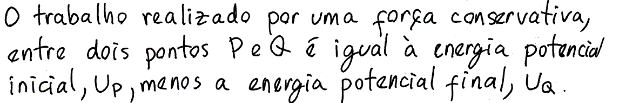 O trabalho realizado por uma força conservativa,
entre dois pontos P e Q é igual à energia potencial
inicial, UP, menos a energia potencial final, UQ.